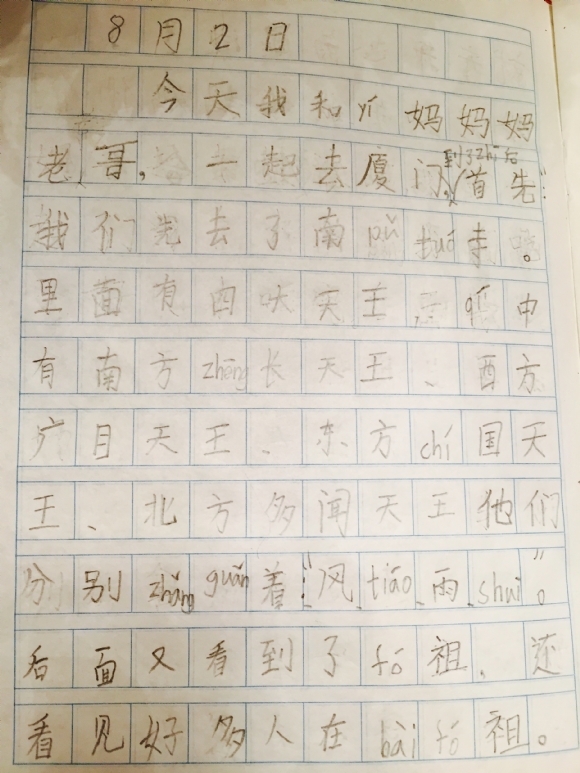 8月2日
今天我和yí妈妈妈
老哥，一起去厦门，到了zhī后首先：
我们先去了南pǔ tuó寺。
里面有四大天王，qí中
有南方zhēng长天王、西方
广目天王、东方chí国天
王、北方多闻天王他们
分别zhǎng guǎn着：“风、tiáo、雨、shuì”。
后面又看到了fó祖，还
看见好多人在bài fó祖。